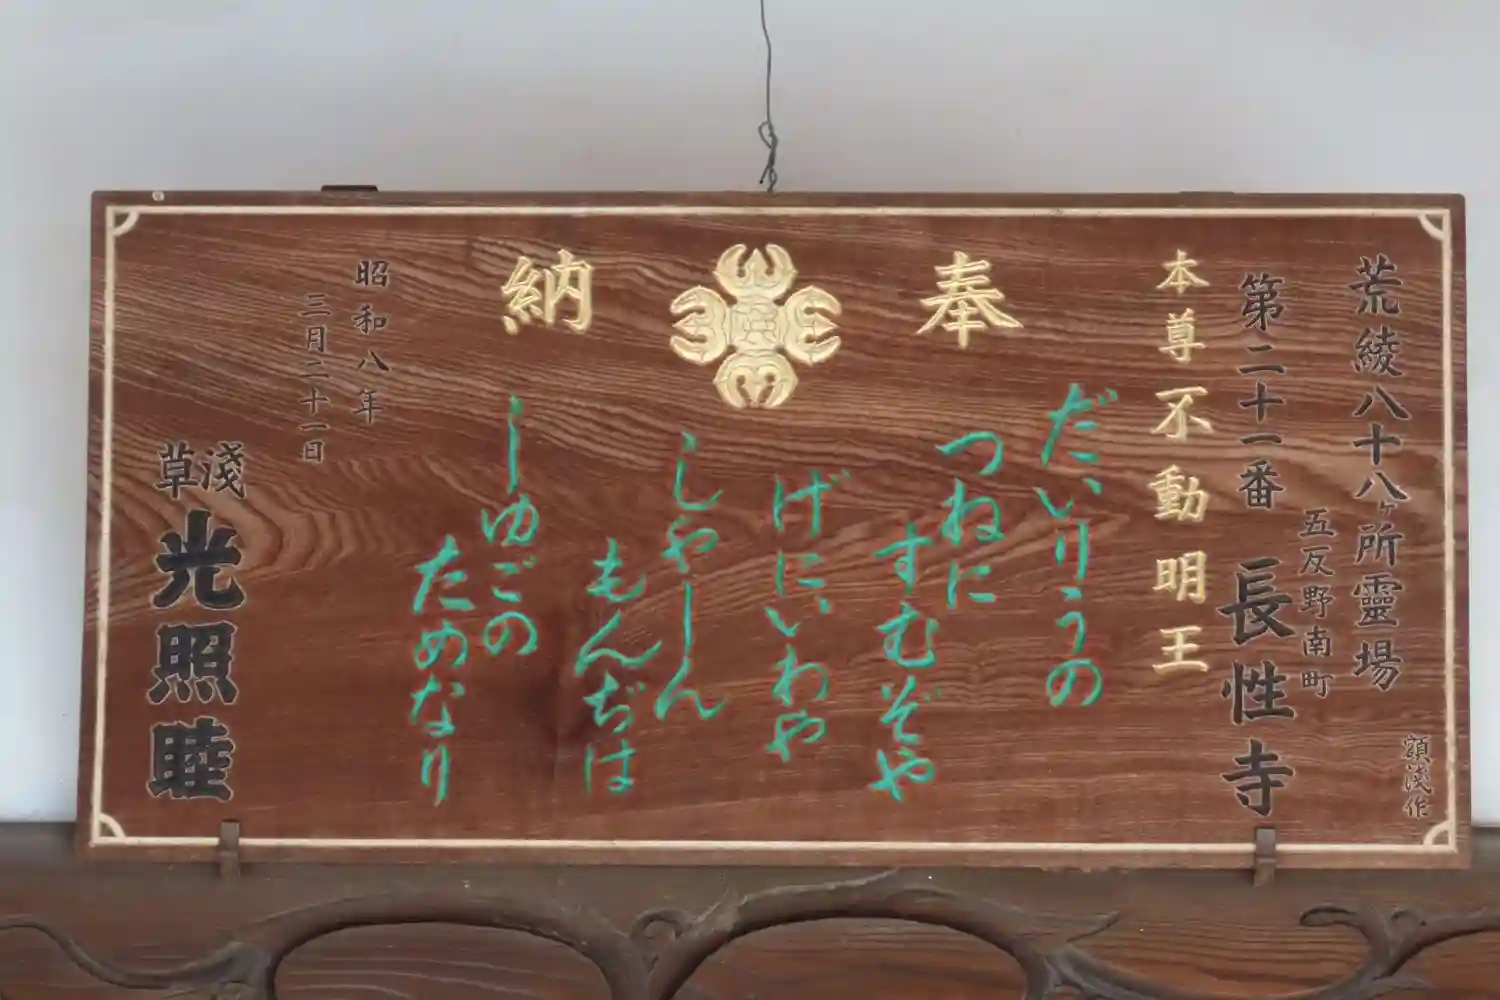 荒綾八十八ヶ所靈場
額淺作
五反野南町
第二十一番 長性寺
本尊不動明王
奉納
だいりうの
つねに
すむぞや
げにいわや
しやしん
もんぢは
しゆごの
ためなり
昭和八年
三月二十一日
淺草 光照睦